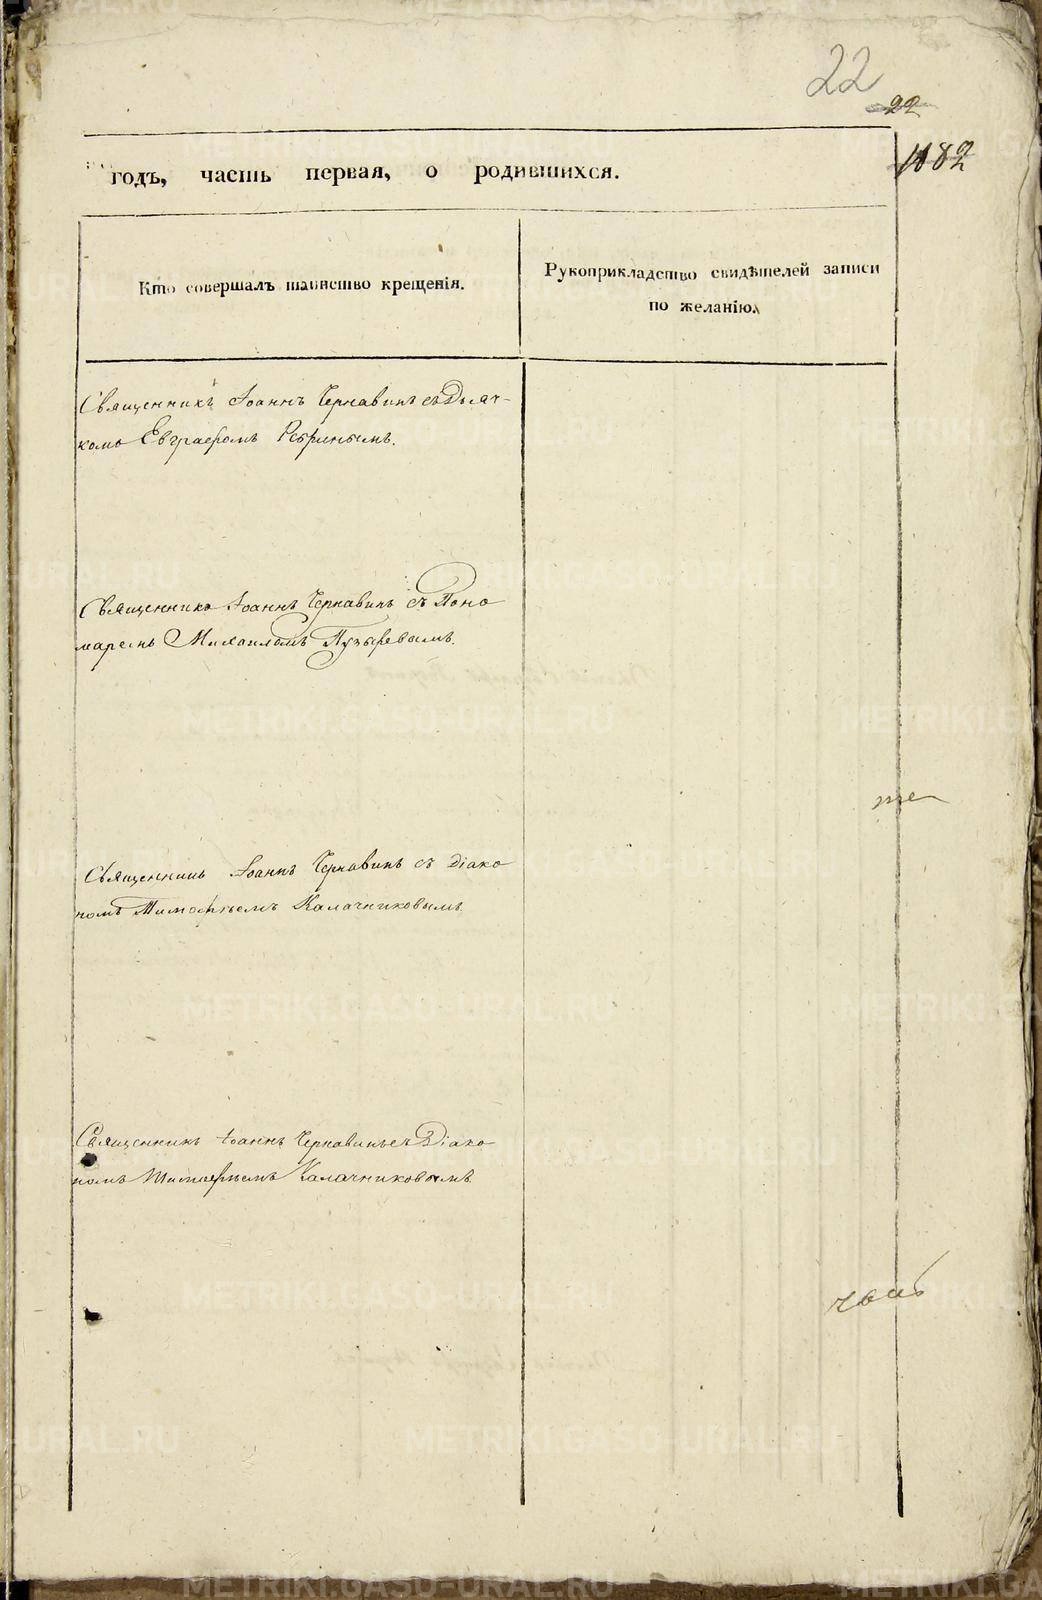 22
22
1182
годъ, часть первая, о родившихся.
Кто совершалъ таинство крещенія.
Рукоприкладство свидѣтелей записи
по желанію.
Священникъ Іоаннъ Чернавинъ съ Дьяч-
комъ Евграфомъ Ребринымъ.
Священникъ Іоаннъ Чернавинъ съ Поно
маремъ Михаиломъ Пузыревымъ.
Священникъ Іоаннъ Чернавинъ съ Діако
номъ Тимофеемъ Калачниковымъ.
Священникъ Іоаннъ Чернавинъ съ Діако
номъ Тимофеемъ Калачниковымъ
METRIKI.GASO-URAL.RU